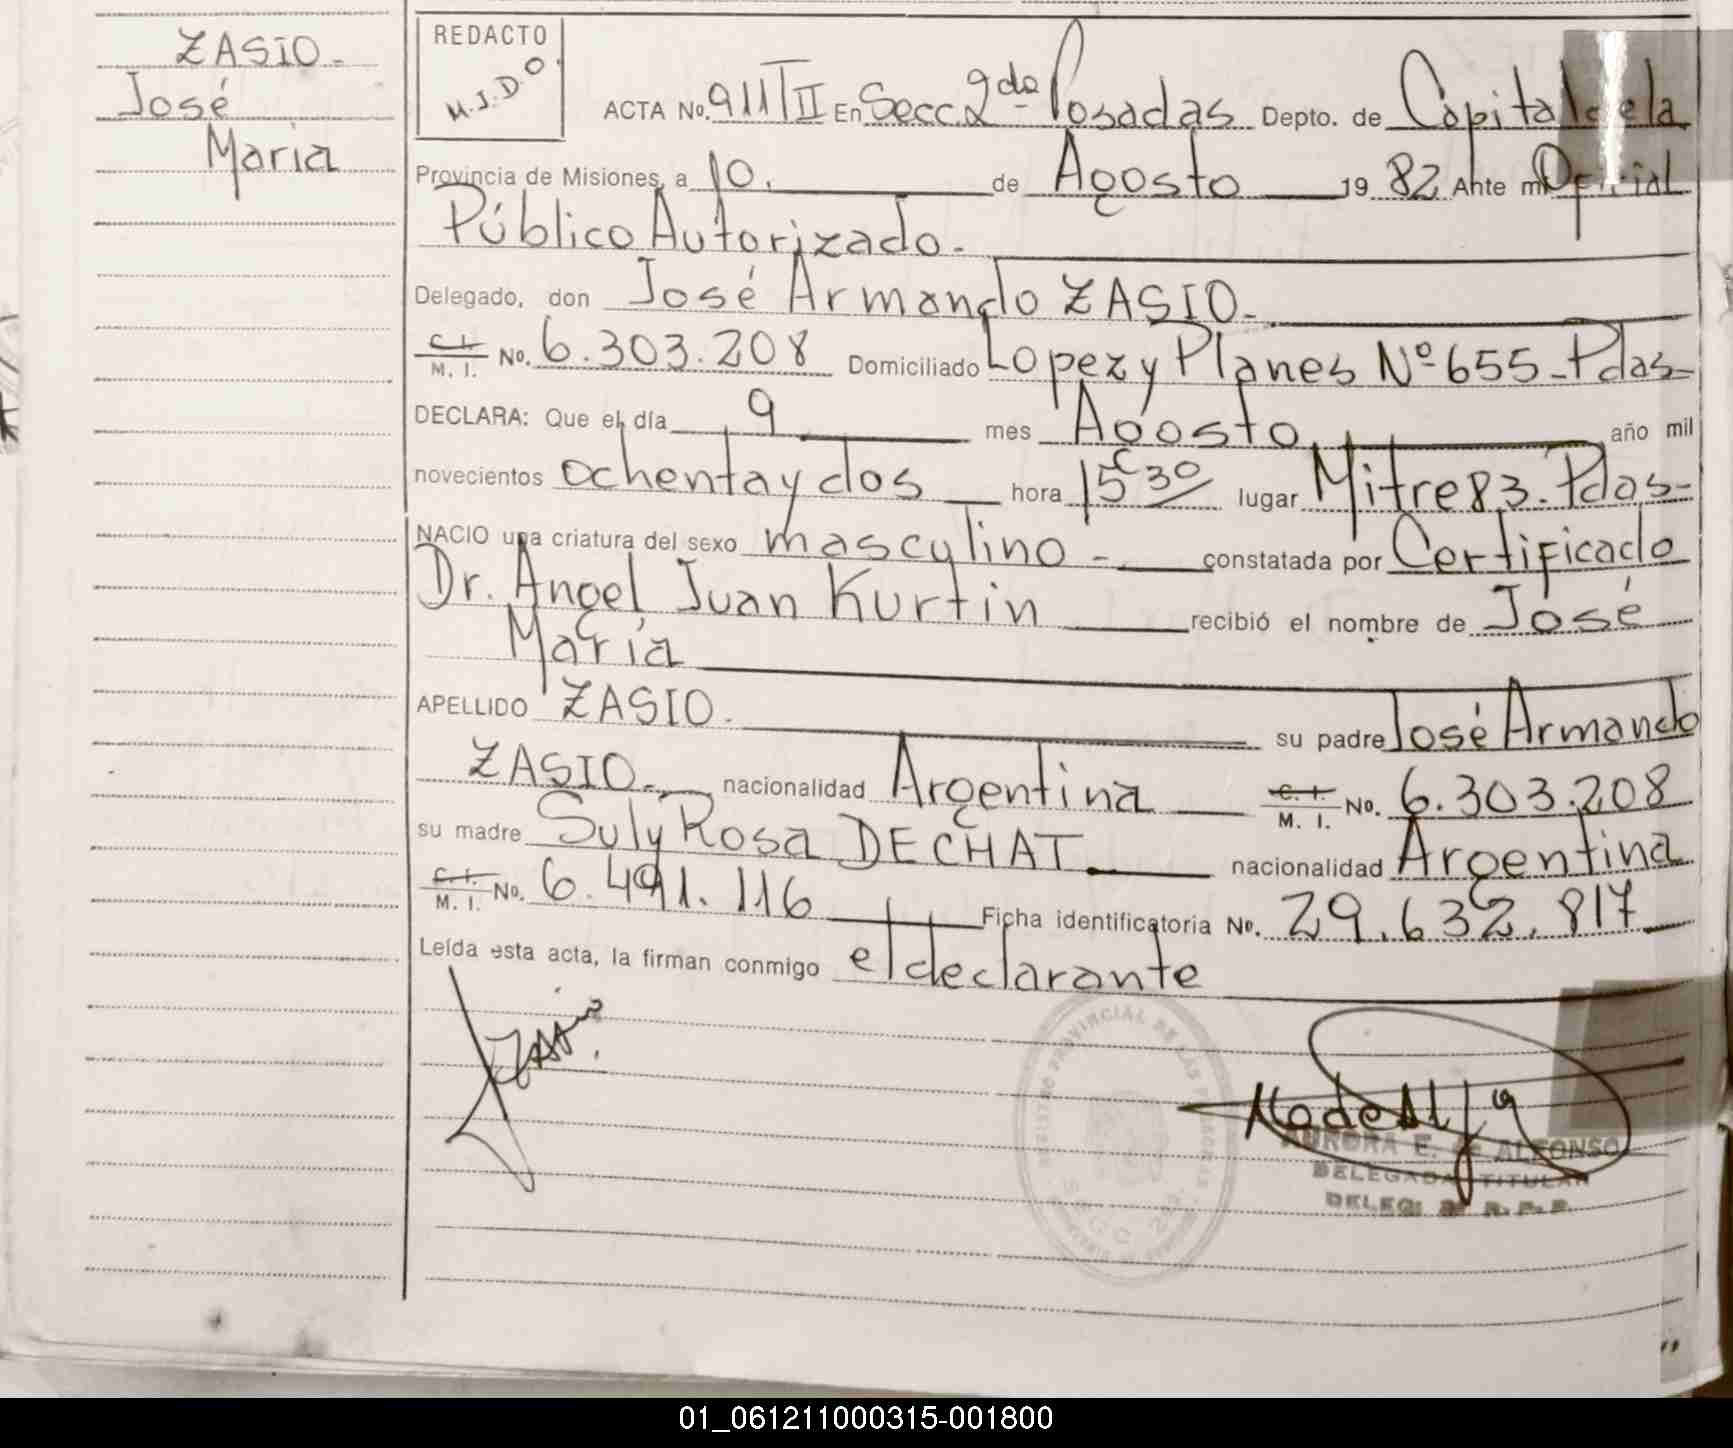 ZASIO.
José
Maria
REDACTO
M.J.D.O.
ACTA No. 911 TII En Secc. 2da Posadas Depto. de Capital de la
Provincia de Misiones, a 10. de Agosto 19 82 Ante mí Oficial
Público Autorizado.
Delegado, don José Armando ZASIO.
C.I. M. I. No. 6.303.208 Domiciliado Lopez y Planes Nº 655 - Pdas-
DECLARA: Que el día 9 mes Agosto año mil
novecientos ochenta y dos hora 15 30 lugar Mitre 83. Pdas-
NACIO una criatura del sexo masculino - constatada por Certificado
Dr. Angel Juan Kurtin recibió el nombre de José
María
APELLIDO ZASIO. su padre José Armando
ZASIO. nacionalidad Argentina C. I. M. I. No. 6.303.208
su madre Suly Rosa DECHAT nacionalidad Argentina
C. I. M. I. No. 6.491.116 Ficha identificatoria No. 29.632.817
Leída esta acta, la firman conmigo el declarante
REGISTRO PROVINCIAL DE LAS PERSONAS
AURORA E. de ALFONSO
DELEGADA TITULAR
DELEG. R. P. P.
01_061211000315-001800